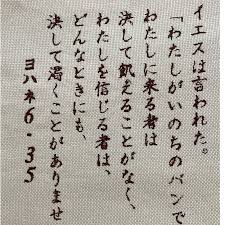 イエスは言われた。
「わたしがいのちのパンで
わたしに来る者は
決して飢えることがなく、
わたしを信じる者は、
どんなときにも、
決して渇くことがありませ
ヨハネ6・35